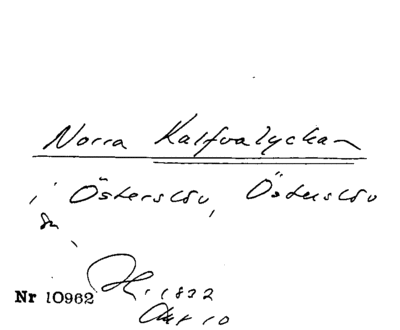 Norra Kalfvalyckan
i Österslöv, Österslöv
sn
Nr 10962
H. 1832
Akt 10